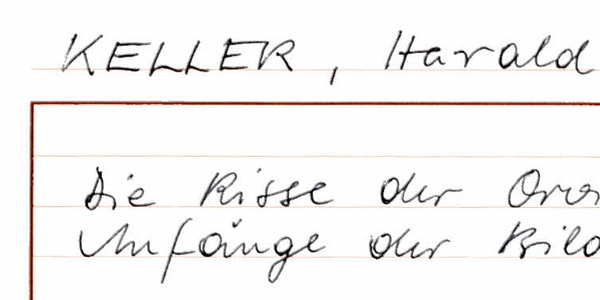 KELLER, Harald
Die Risse der Orvi
Anfänge der Bild